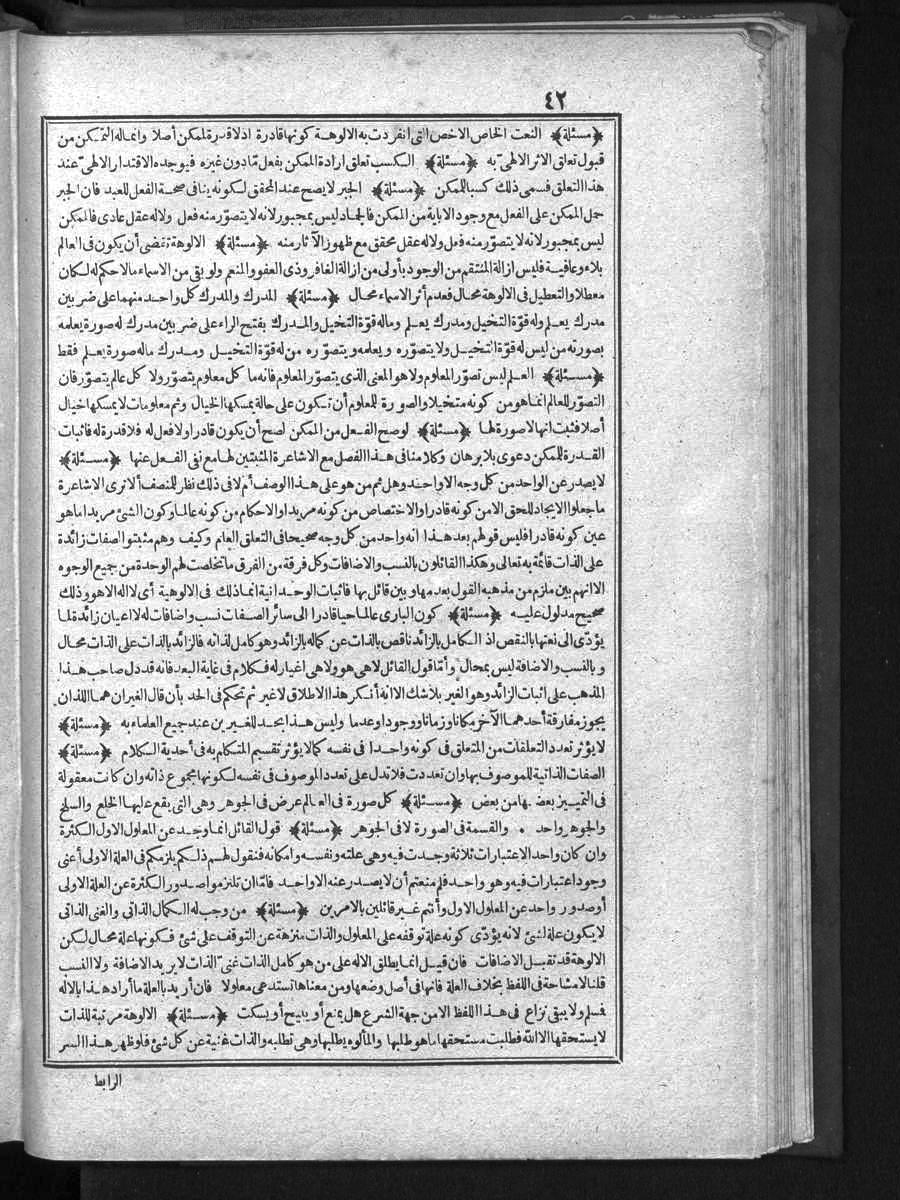 ٤٢
﴿مسئلة﴾ النعت الخاص الاخص التى انفردت به الالوهة كونها قادرة اذ لا قدرة لممكن أصلا وانما له التمكن من
قبول تعلق الاثر الالهىّ به ﴿مسئلة﴾ الكسب تعلق ارادة الممكن بفعل مّا دون غيره فيوجده الاقتدار الالهىّ عند
هذا التعلق فسمى ذلك كسبا للممكن ﴿مسئلة﴾ الجبر لا يصح عند المحقق لكونه ينافى صحة الفعل للعبد فان الجبر
حمل الممكن على الفعل مع وجود الاباية من الممكن فالجماد ليس بمجبور لانه لا يتصوّر منه فعل ولا له عقل عادى فالممكن
ليس بمجبور لانه لا يتصوّر منه فعل ولا له عقل محقق مع ظهور الآثار منه ﴿مسئلة﴾ الالوهة تقضى أن يكون فى العالم
بلاء وعافية فليس ازالة المنتقم من الوجود بأولى من ازالة الغافر وذى العفو والمنعم ولو بقى من الاسماء مالا حكم له لكان
معطلا والتعطيل فى الالوهة محال فعدم أثر الاسماء محال ﴿مسئلة﴾ المدرك والمدرك كل واحد منهما على ضربين
مدرك يعلم وله قوّة التخيل ومدرك يعلم وماله قوّة التخيل والمدرك بفتح الراء على ضربين مدرك له صورة يعلمه
بصورته من ليس له قوّة التخيل ولا يتصوّره ويعلمه ويتصوّره من له قوّة التخيل ومدرك ماله صورة يعلم فقط
﴿مسئلة﴾ العلم ليس تصوّر المعلوم ولا هو المعنى الذى يتصوّر المعلوم فانه ما كل معلوم يتصوّر ولا كل عالم يتصوّر فان
التصوّر للعالم انما هو من كونه متخيلا والصورة للمعلوم أن تكون على حالة يمسكها الخيال وثم معلومات لا يمسكها خيال
أصلا فثبت انها لا صورة لها ﴿مسئلة﴾ لو صح الفعل من الممكن لصح أن يكون قادرا ولا فعل له فلا قدرة له فاثبات
القدرة للممكن دعوى بلا برهان وكلامنا فى هذا الفصل مع الاشاعرة المثبتين لها مع نفى الفعل عنها ﴿مسئلة﴾
لا يصدر عن الواحد من كل وجه الا واحد وهل ثم من هو على هذا الوصف أم لا فى ذلك نظر للمنصف ألا ترى الاشاعرة
ما جعلوا الايجاد للحق الا من كونه قادرا والاختصاص من كونه مريدا والاحكام من كونه عالما وكون الشئ مريدا ما هو
عين كونه قادرا فليس قولهم بعد هذا انه واحد من كل وجه صحيحا فى التعلق العام وكيف وهم مثبتو الصفات زائدة
على الذات قائمة به تعالى وهكذا القائلون بالنسب والاضافات وكل فرقة من الفرق ما تخلصت لهم الوحدة من جميع الوجوه
الا انهم بين ملزم من مذهبه القول بعدمها وبين قائل بها فاثبات الوحدانية انما ذلك فى الالوهية أى لا اله الا هو وذلك
صحيح مدلول عليه ﴿مسئلة﴾ كون البارى عالما حيا قادرا الى سائر الصفات نسب واضافات له لا اعيان زائدة لما
يؤدّى الى نعتها بالنقص اذ الكامل بالزائد ناقص بالذات عن كماله بالزائد وهو كامل لذاته فالزائد بالذات على الذات محال
وبالنسب والاضافة ليس بمحال وأمّا قول القائل لا هى هو ولا هى اغيار له فكلام فى غاية البعد فانه قد دل صاحب هذا
المذهب على اثبات الزائد وهو الغير بلا شك الا انه أنكر هذا الاطلاق لا غير ثم تحكم فى الحد بأن قال الغيران هما اللذان
يجوز مفارقة أحدهما الآخر مكانا وزمانا ووجودا وعدما وليس هذا بحد للغيرين عند جميع العلماء به ﴿مسئلة﴾
لا يؤثر تعدد التعلقات من المتعلق فى كونه واحدا فى نفسه كما لا يؤثر تقسيم المتكلم به فى أحدية الكلام ﴿مسئلة﴾
الصفات الذاتية للموصوف بها وان تعددت فلا تدل على تعدد الموصوف فى نفسه لكونها مجموع ذاته وان كانت معقولة
فى التمييز بعضها من بعض ﴿مسئلة﴾ كل صورة فى العالم عرض فى الجوهر وهى التى يقع عليها الخلع والسلخ
والجوهر واحد . والقسمة فى الصورة لا فى الجوهر ﴿مسئلة﴾ قول القائل انما وجد عن المعلول الاول الكثرة
وان كان واحد الاعتبارات ثلاثة وجدت فيه وهى علته ونفسه وامكانه فنقول لهم ذلكم يلزمكم فى العلة الاولى أعنى
وجود اعتبارات فيه وهو واحد فلم منعتم أن لا يصدر عنه الا واحد فامّا ان تلتزموا صدور الكثرة عن العلة الاولى
أو صدور واحد عن المعلول الاول وأنتم غير قائلين بالامرين ﴿مسئلة﴾ من وجب له الكمال الذاتى والغنى الذاتى
لا يكون علة لشئ لانه يؤدّى كونه علة توقفه على المعلول والذات منزهة عن التوقف على شئ فكونها علة محال لكن
الالوهة قد تقبل الاضافات فان قيل انما يطلق الاله على من هو كامل الذات غنىّ الذات لا يريد الاضافة ولا النسب
قلنا لا مشاحة فى اللفظ بخلاف العلة فانها فى أصل وضعها ومن معناها تستدعى معلولا فان أريد بالعلة ما أراد هذا بالاله
فمسلم ولا يبقى نزاع فى هذا اللفظ الا من جهة الشرع هل يمنع أو يبيح أو يسكت ﴿مسئلة﴾ الالوهة مرتبة للذات
لا يستحقها الا الله فطلبت مستحقها ما هو طلبها والمألوه يطلبها وهى تطلبه والذات غنية عن كل شئ فلو ظهر هذا السر
الرابط